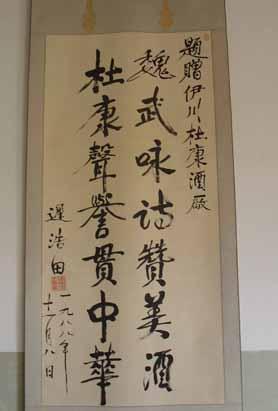 題贈伊川杜康酒厰
魏武咏诗贊美酒
杜康聲譽貫中華
遲浩田
一九八八年
十一月八日